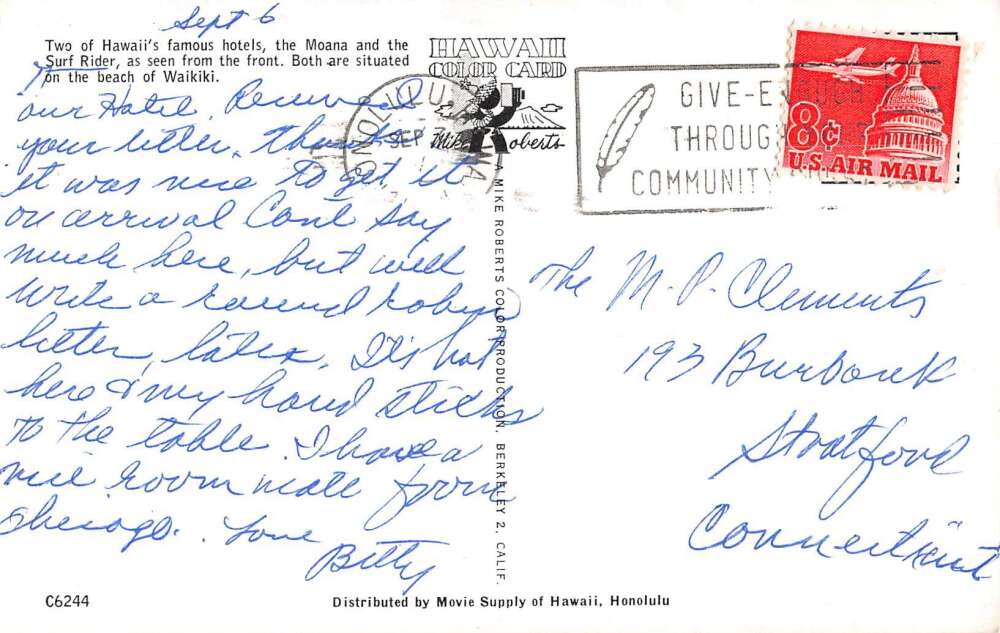 Sept 6
Two of Hawaii's famous hotels, the Moana and the
Surf Rider, as seen from the front. Both are situated
on the beach of Waikiki.
our Hotel Received
your letter, Thanks
it was nice to get it
on arrival Can't say
much here, but will
write a round robin
letter, later, It's hot
here & my hand sticks
to the table. I have a
nice room mate from
Chicago. Love
Betty
C6244
HAWAII
COLOR CARD
Mike Roberts
HONOLULU
SEP
MIKE ROBERTS COLOR PRODUCTION, BERKELEY 2, CALIF.
GIVE-ENOUGH
THROUGH
COMMUNITY
8¢
U.S. AIR MAIL
The M. P. Clements
193 Burbank
Stratford
Connecticut
Distributed by Movie Supply of Hawaii, Honolulu